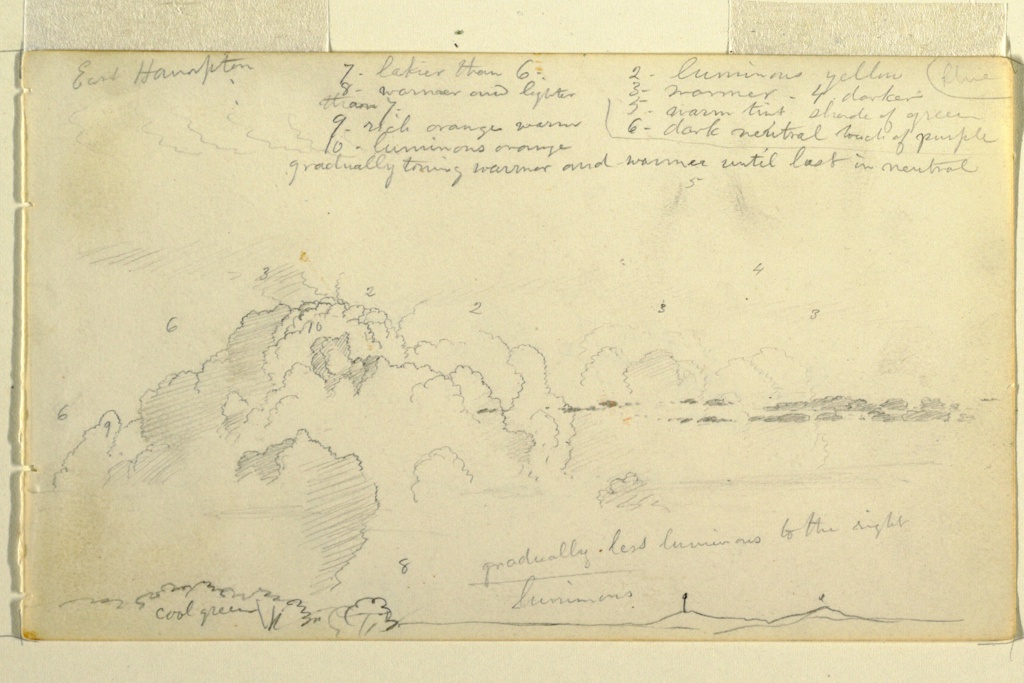 East Hampton
7- lakier than 6-
8- warmer and lighter
than 7-
9- rich orange warm
10- luminous orange
2- luminous yellow (blue
3- warmer - 4 darker
5- warm tint shade of green
6- dark neutral touch of purple
gradually toning warmer and warmer until last in neutral
5
3
2
4
6
2
3
3
10
6
9
8
gradually less luminous to the right
luminous
cool green